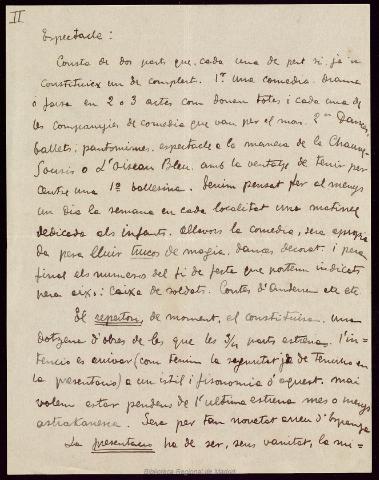 II
Espectacle:
Consta de dos parts que cada una de per si ja
constitueix un de complert. 1ª una comedia. drama
o farsa en 2 o 3 actes com donen totes i cada una de
les companyies de comedia que van per el mon. 2ª Danses,
ballets, pantomimes, espectacle a la manera de la Chauve
Souris o L'Oiseau Bleu. amb la ventatge de tenir per
centre una 1ª ballerina. Tenim pensat fer al menys
un dia la semana en cada localitat una matinée
dedicada als infants. Allavors la comedia, sera apropia
da pera lluir trucs de magia, danses decorat i pera
final els numeros del fi de festa que portem indicats
pera aixo: Caixa de soldats. Contes d'Andersen etc etc.
El repertori, de moment, el constituiran una
dotzena d'obres de les que les 3/4 parts estrena. l'in-
tencio es arrivar (com tenim la seguritat ja de tenirho en
la presentacio) a un istil i fisonomia d'aquest. mai
volem estar pendens de l'ultima estrena mes o menys
astrakanesca. Sera per tan novetat arreu d'Espanya
La presentacio ha de ser, sens vanitat, la mi-
Biblioteca Regional de Madrid